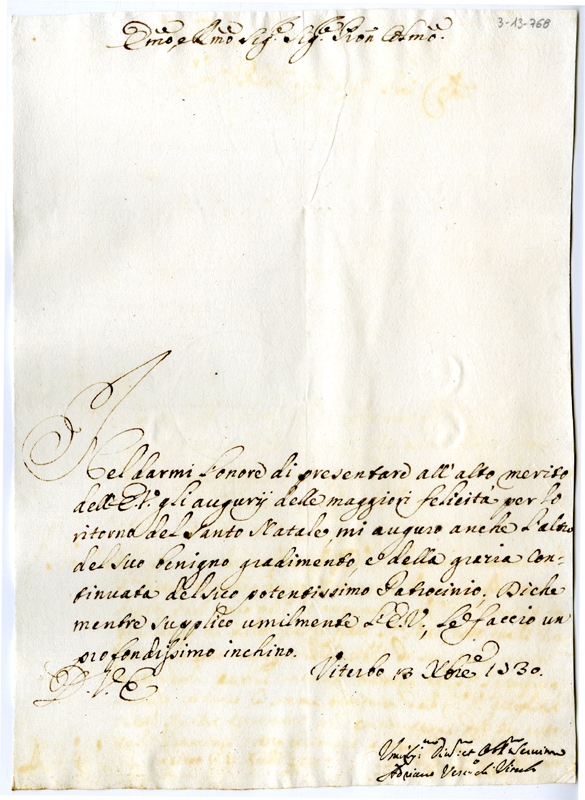 3-13-768
Em̃o, e Rm̃o Sig.r Sig.r Pron Colmo.
Nel darmi l'onore di presentare all'alto merito
dell'E.V. gli augurij delle maggiori felicità per lo
ritorno del Santo Natale, mi auguro anche l'altro
del suo benigno gradimento, e della grazia con=
tinuata del suo potentissimo Patrocinio. Di che
mentre supplico umilmente l'E.V., Le faccio un
profondissimo inchino.
D. V. E.
Viterbo 13 Xbre 1730.
Umiliss.mo Div.mo et Obb.mo Servitore
Adriano Vesc.o di Viterbo